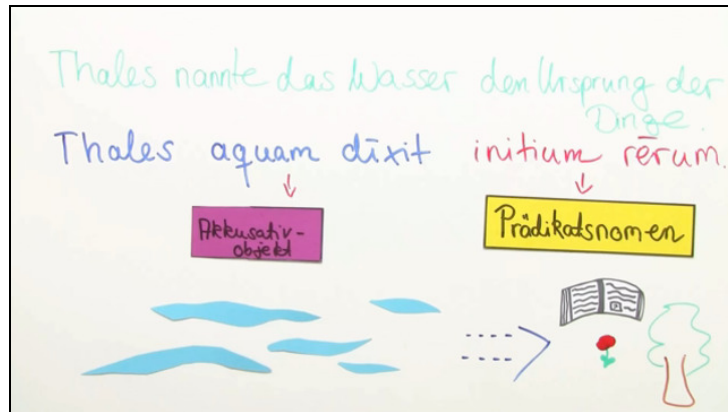 Thales nannte das Wasser den Ursprung der
Dinge.
Thales aquam dīxit initium rērum.
Akkusativ-
objekt
Prädikatsnomen